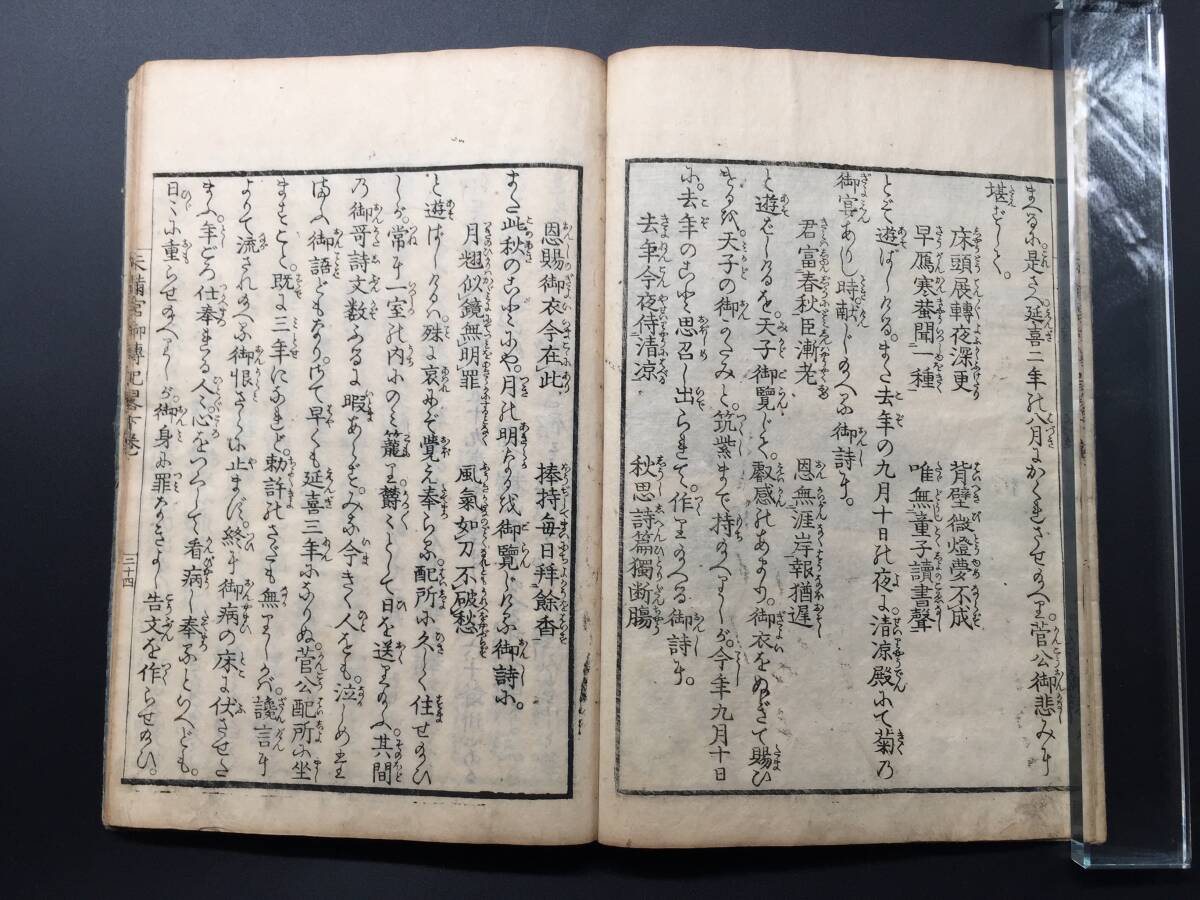 まへるに是さへ延喜二年の八月にかくれさせ給へり菅公御悲みに
堪ずして
床頭展轉夜深更　背壁微燈夢不成
早鴈寒蛬聞一種　唯無童子讀書聲
とぞ遊ばしける。また去年の九月十日の夜に清凉殿にて菊の
御宴ありし時獻じ給へる御詩に。
君富春秋臣漸老　恩無涯岸報猶遲
と遊ばしけるを。天子御覽じて。叡感のあまり。御衣をぬぎて賜ひ
けるを天子の御かたみと。筑紫まで持給へりしが。今年九月十日
に。去年のことを思召し出られて。作り給へる御詩に。
去年今夜侍清凉　秋思詩篇獨斷膓
恩賜御衣今在此　捧持毎日拜餘香
また此秋のことにや。月の明なるを御覽じ給ふ御詩に。
月翅似鏡無明罪　風氣如刀不破愁
と遊ばしけるは殊に哀れに覺え奉らる。配所に久しく住せ給ひ
しが。常に一室の内にのみ籠り欝々として日を送り給ふ。其間
の御哥詩文數ふるに暇あらず。みな今きく人をも。泣しめ
給ふ御語どもなり。さて早くも延喜三年になりぬ。菅公配所に坐
ますこと。既に三年になれど。勅許のさたも無りしかば。讒言に
よりて流され給へる御恨さらに止まず。終に御病の床に伏させ
給ふ。年ごろ仕奉れる人々心をつくして看病し奉るといへども。
日々に重らせ給へりしが。御身に罪なきよし告文を作らせ給ひ。
天満宮御傳記畧下巻
三十四